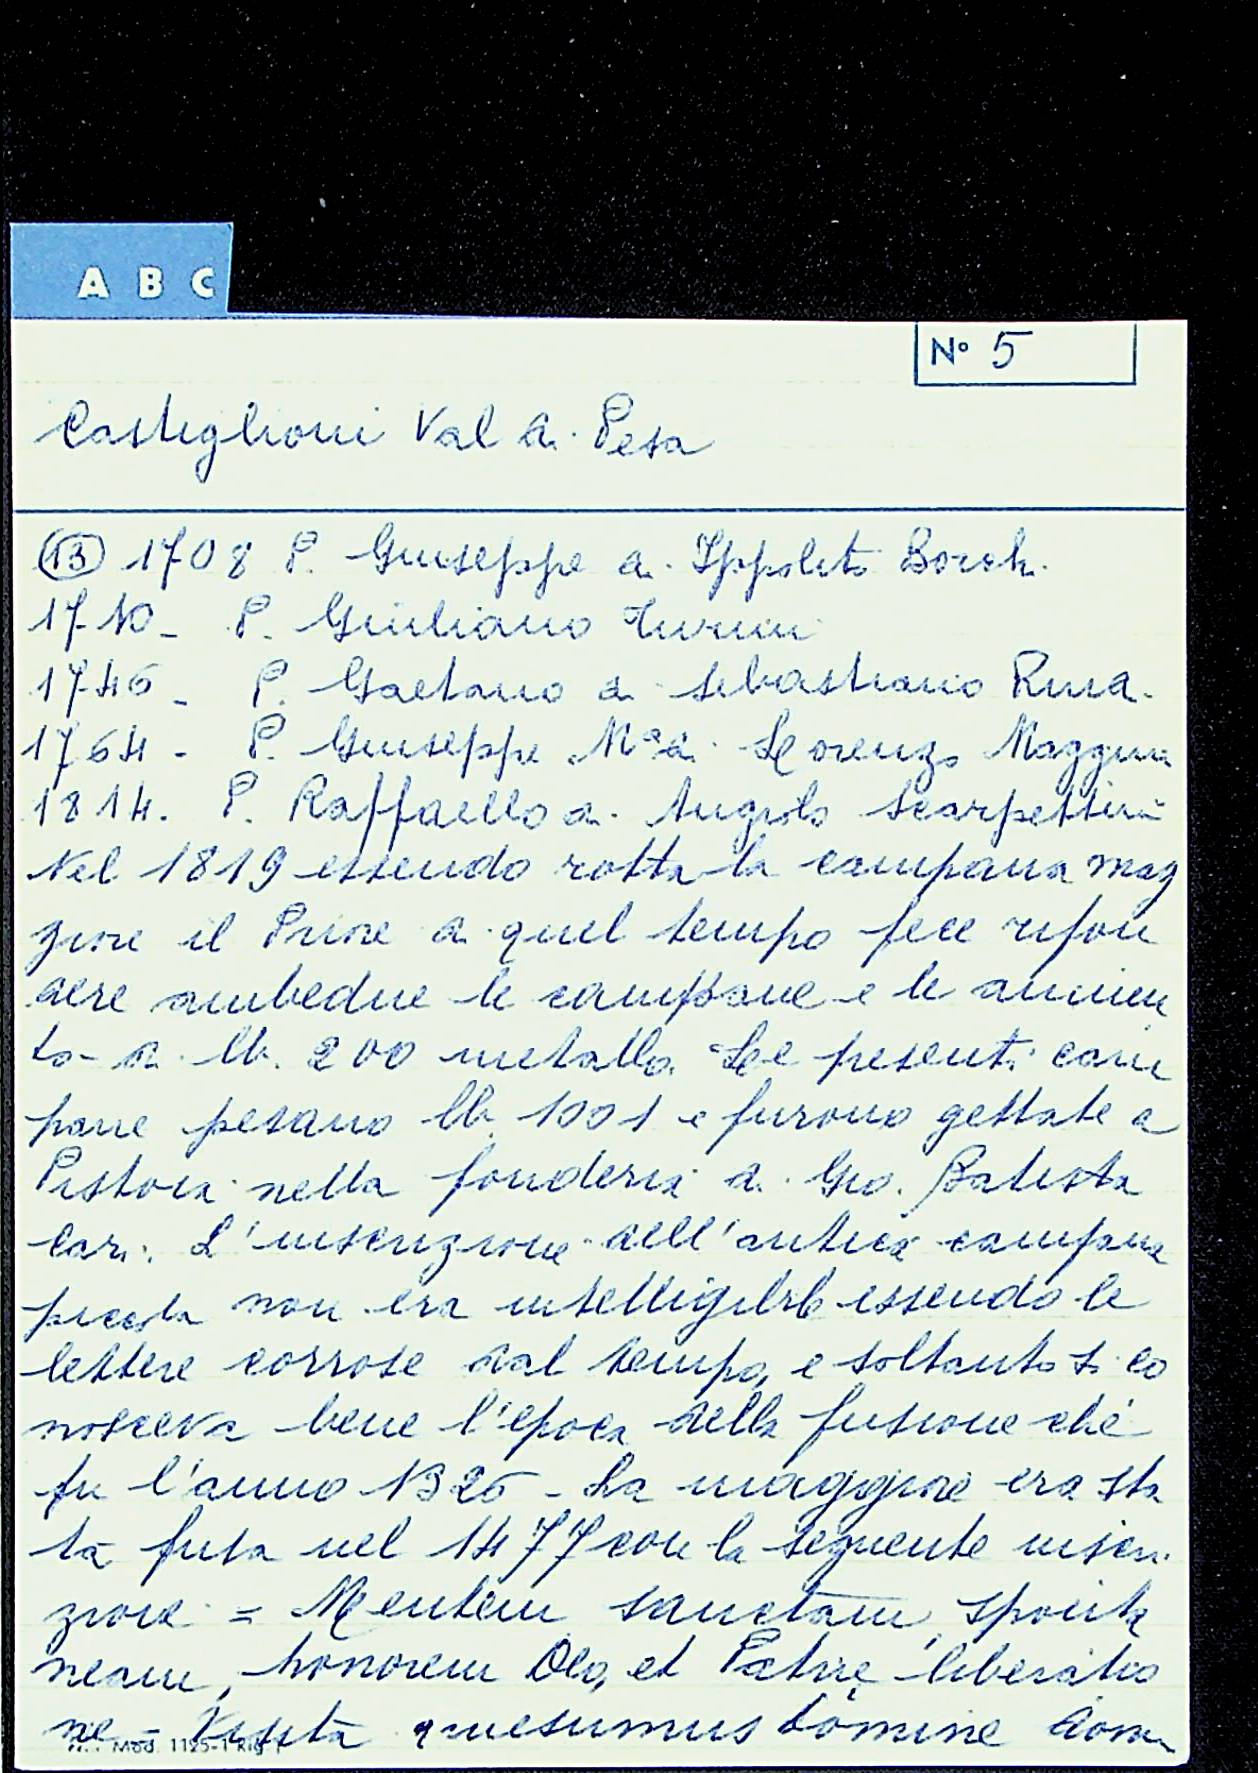 A B C
Nº 5
Castiglioni Val di Pesa
(13) 1708 P. Giuseppe di Ippolito Borch.
1710 - P. Giuliano Turini
1746 - P. Gaetano di Sebastiano
1764 - P. Giuseppe Mª di Lorenzo
1814. P. Raffaello di Angiolo Scarpettini
Nel 1819 essendo rotta la campana mag
giore il Priore di quel tempo fece rifon
dere ambedue le campane e le aumen
tò di lb. 200 metallo. Le presenti cam
pane pesano lb 1001 e furono gettate a
Pistoia nella fonderia di Gio. Batista
L'inscrizione dell'antica campana
piccola non era intelligibile essendo le
lettere corrose dal tempo, e soltanto si co
nosceva bene l'epoca della fusione che
fu l'anno - La maggiore era sta
ta fusa nel 1477 con la seguente inscri
zione = Mentem sanctam, sponta
neam, honorem Deo, et Patrie liberatio
ne - Visita quesumus Domine dom
Mod. 1125-1 Rig